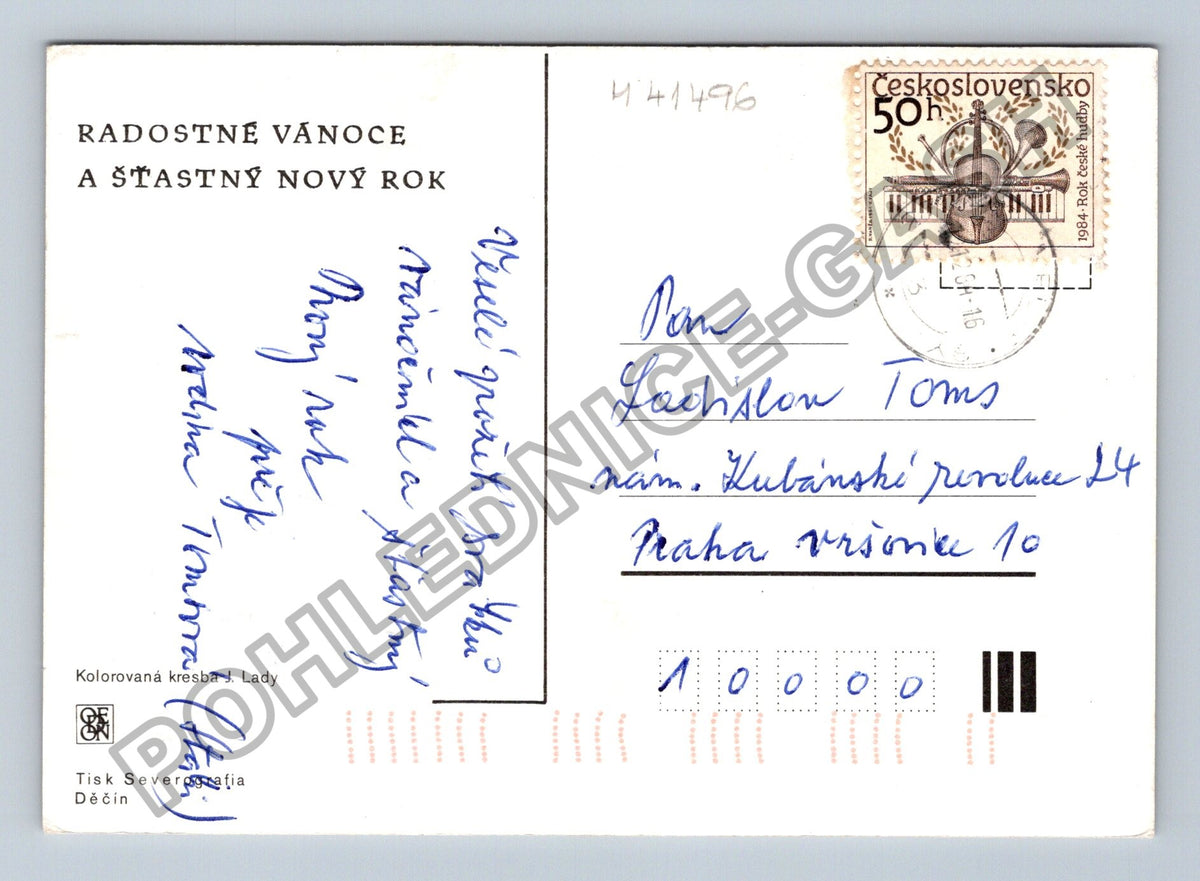 RADOSTNÉ VÁNOCE
A ŠŤASTNÝ NOVÝ ROK
Veselé prožití svátků
Vánočních a šťastný
Nový rok
přeje
Tomsova
Kolorovaná kresba J. Lady
ODEON
Tisk Severografia
Děčín
H 41496
Československo
50h
1984 · Rok české hudby
12.84-16
Pan
Ladislav Toms
nám. Kubánské revoluce 24
Praha Vršovice 10
1 0 0 0 0
POHLEDNICE-GASH